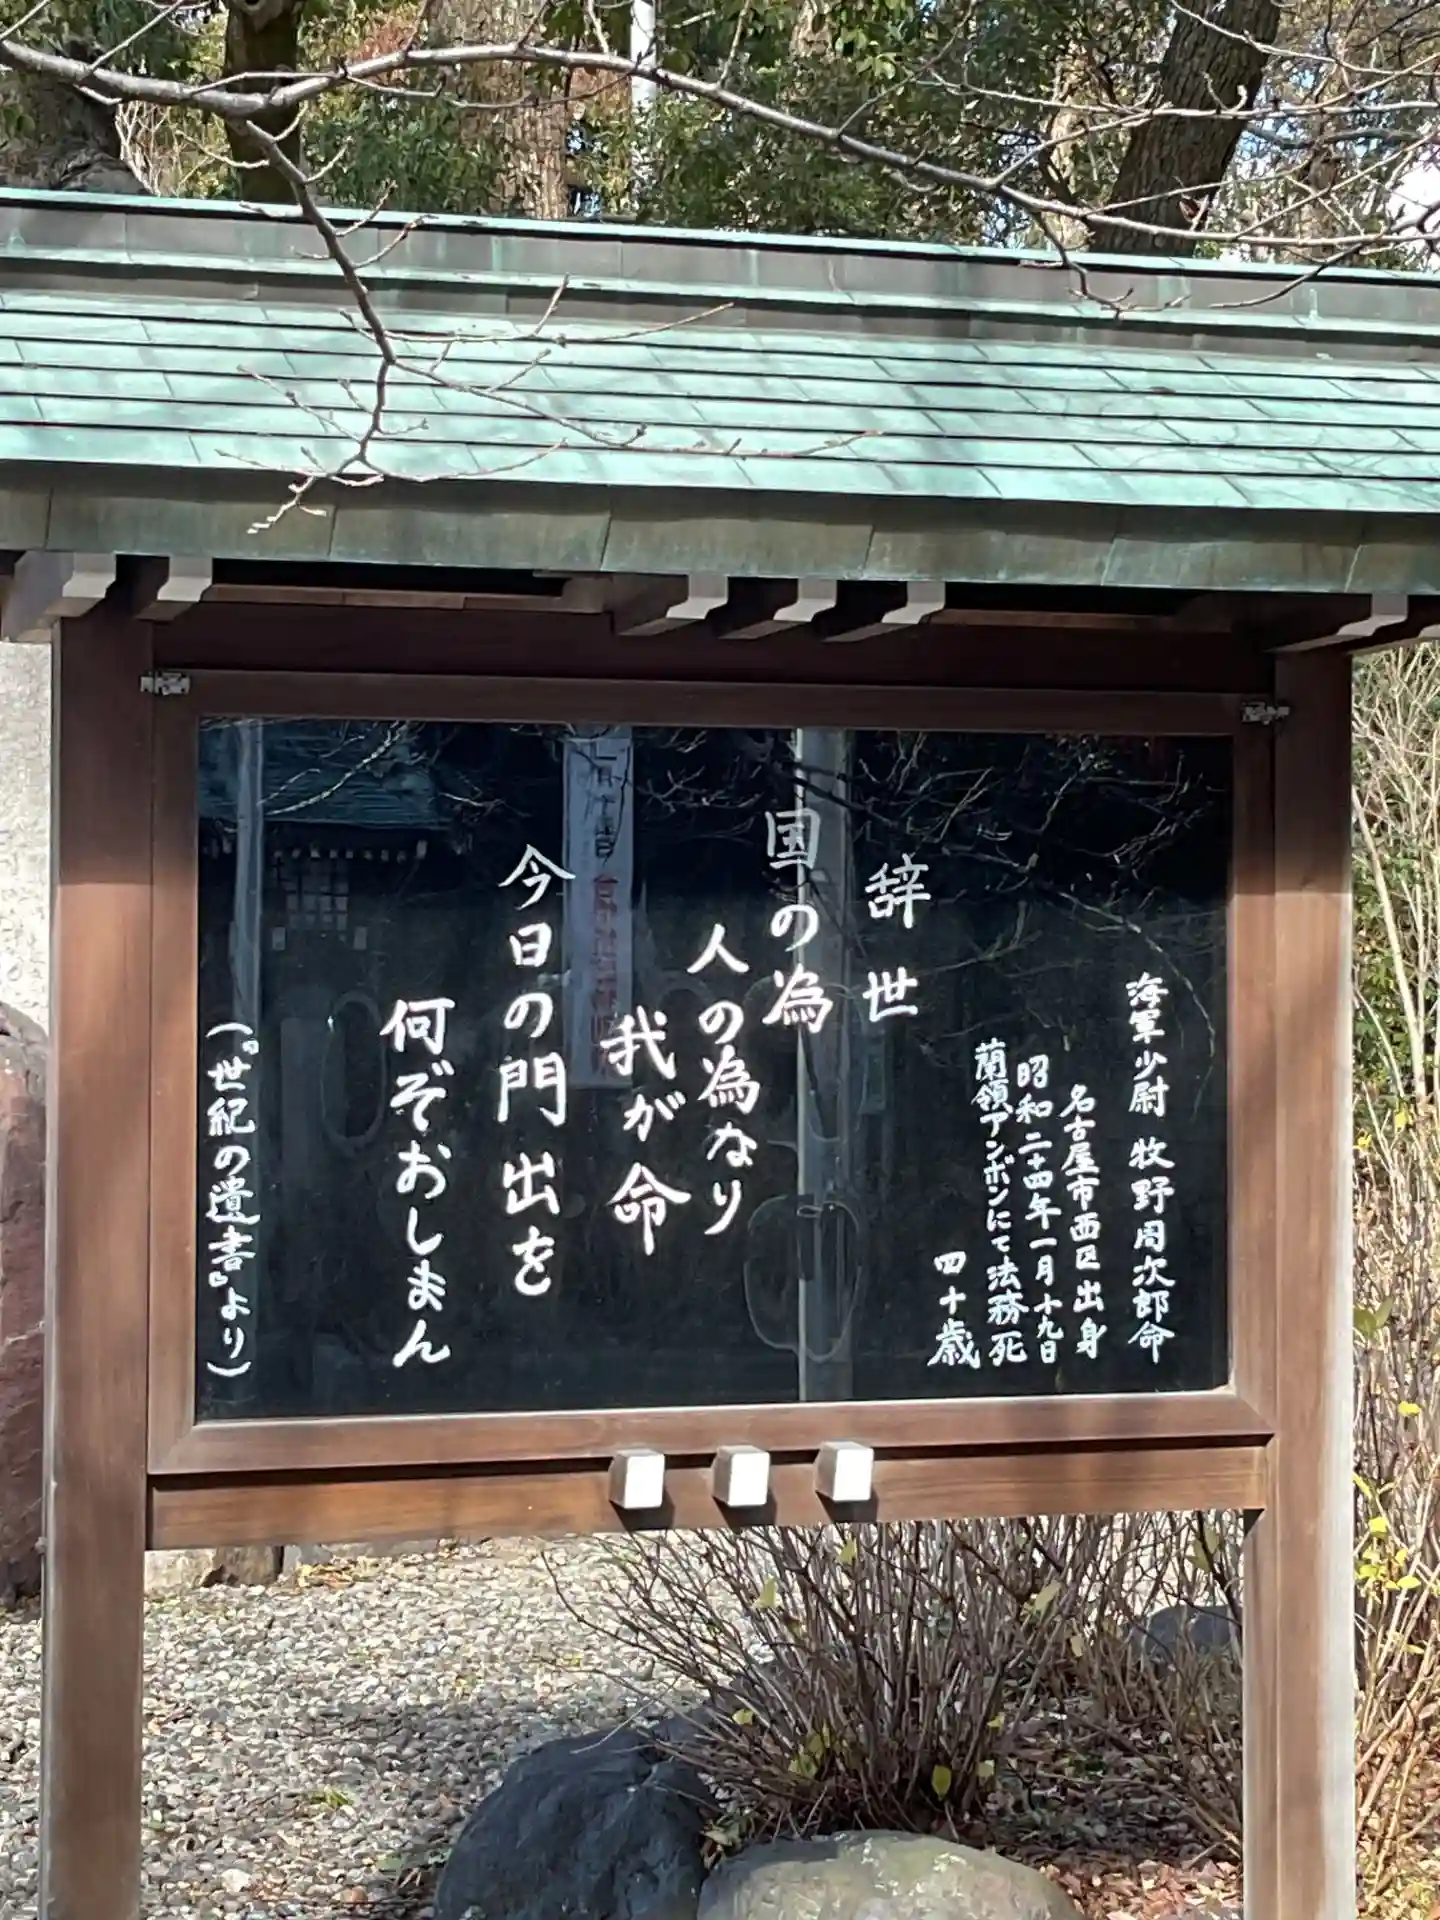 海軍少尉 牧野周次郎命
名古屋市西区出身
昭和二十四年一月十九日
蘭領アンボンにて法務死
四十歳
辞世
国の為
人の為なり
我が命
今日の門出を
何ぞおしまん
(『世紀の遺書』より)